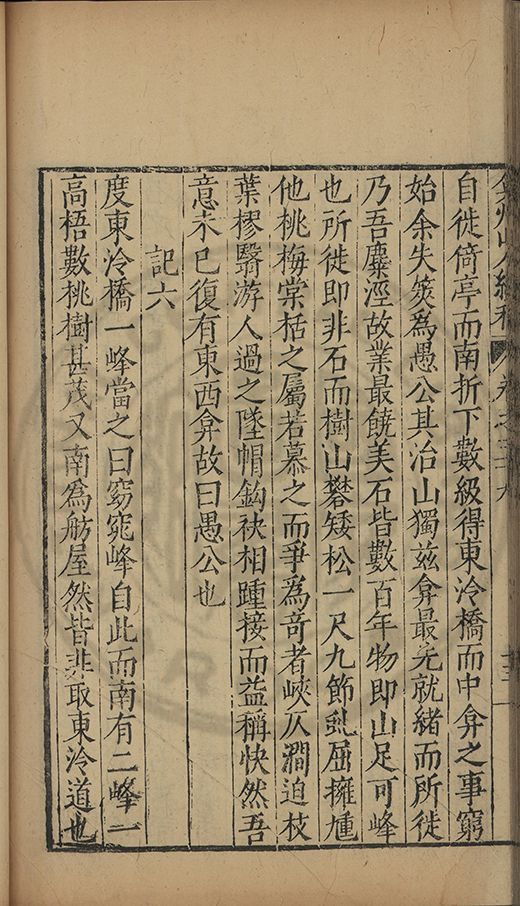 弇州山人續稿 卷之五十九 十三
自徙倚亭而南折下數級得東泠橋而中弇之事窮
始余失筴爲愚公其治山獨茲弇最先就緒而所徙
乃吾麋涇故業最饒美石皆數百年物即山足可峰
也所徙即非石而樹山礬矮松一尺九節虬屈擁腫
他桃梅棠栝之屬若慕之而爭爲奇者峽仄澗迫枝
葉樛翳游人過之墜帽鈎袂相踵接而益稱快然吾
意未已復有東西弇故曰愚公也
記六
度東泠橋一峰當之曰窈窕峰自此而南有二峰一
高梧數桃樹甚茂又南爲舫屋然皆非取東泠道也